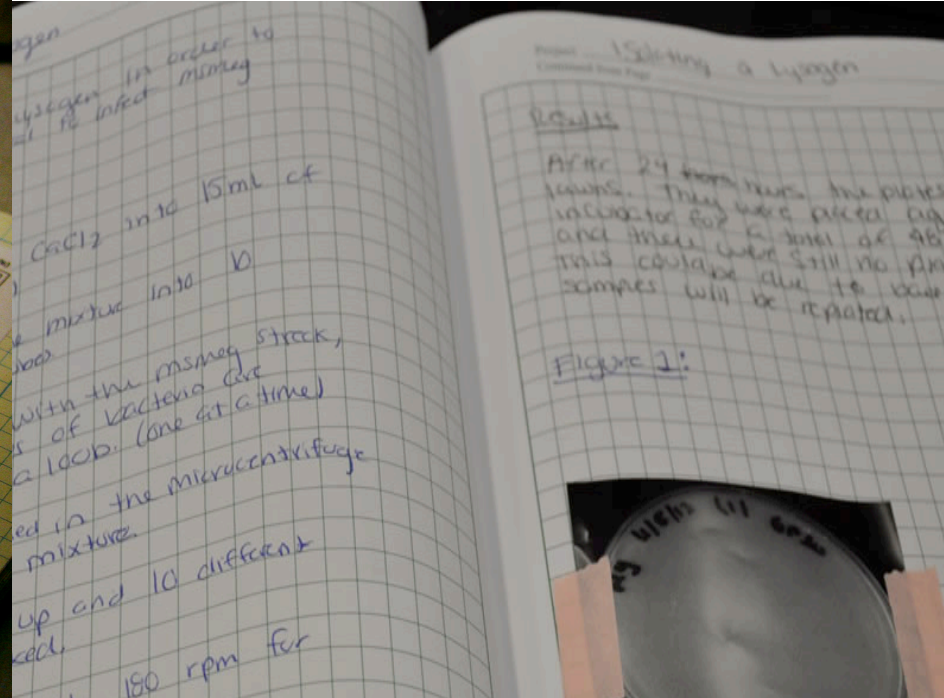 ogen
lysogen in order to
re infect msmeg
CaCl2 into 15ml of
mixture into 10
with the msmeg streck,
s of bacteria are
a loop. (one at a time)
ed in the microcentrifuge
mixture.
up and 10 different
ked.
180 rpm for
Isolating a Lysogen
Results
After 24 hours the plates
lawns. They were placed
incubator for a total of 48
and there were still no
This could be due to
samples will be replated.
Figure 1:
(1)